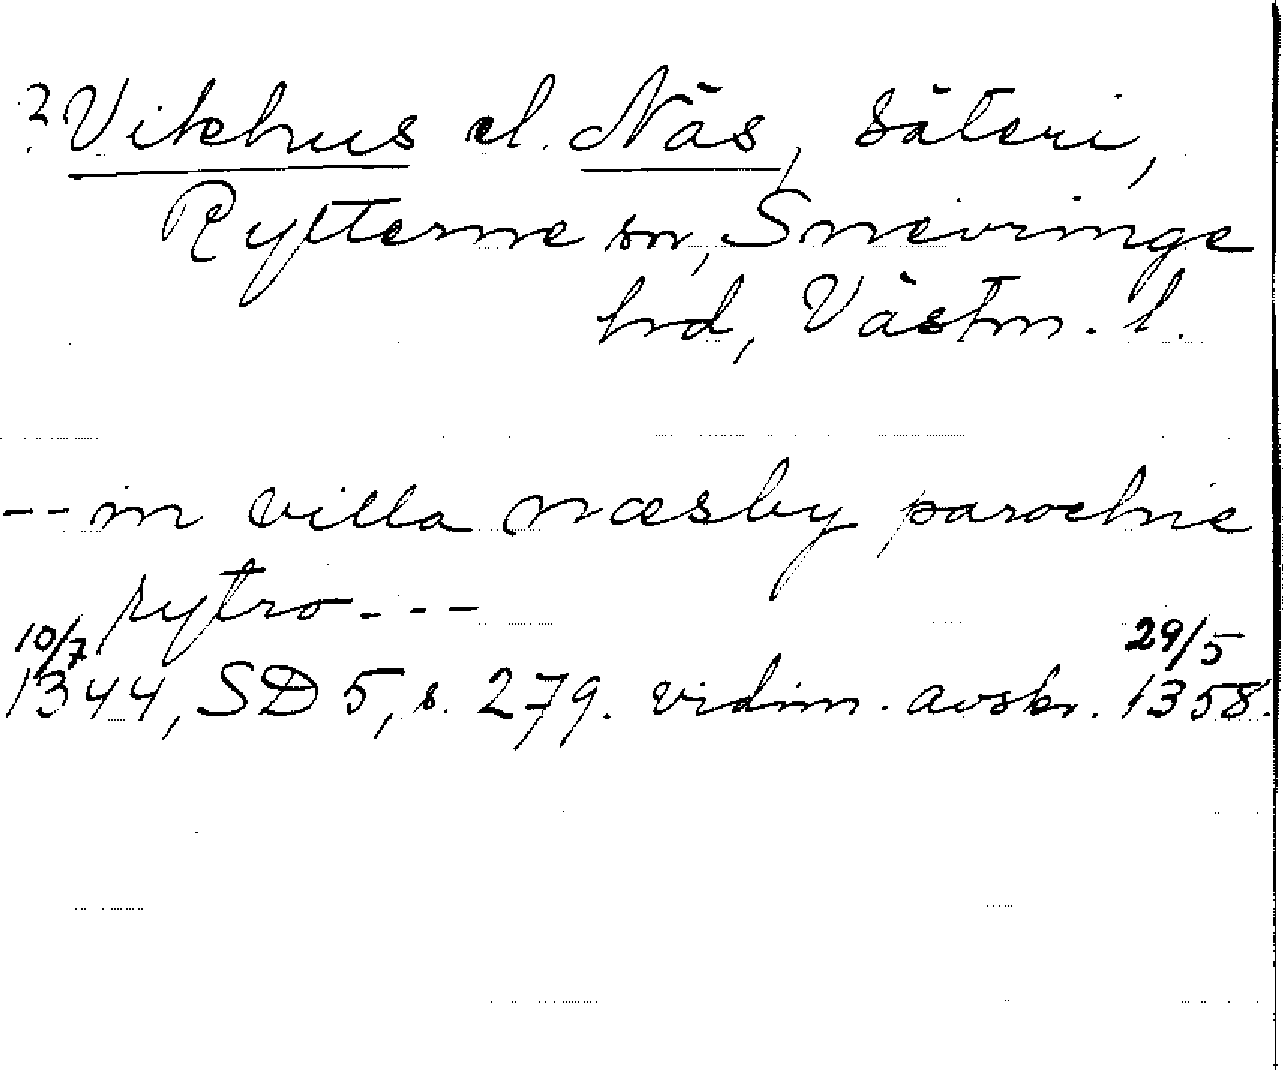 ? Vikhus el. Näs, säteri,
Rytterne sn, Snevringe
hrd, Västm. l.
-- in villa næsby parochie
rytro - - -
10/7 29/5
1344, SD 5, s. 279. vidim. avskr. 1358.